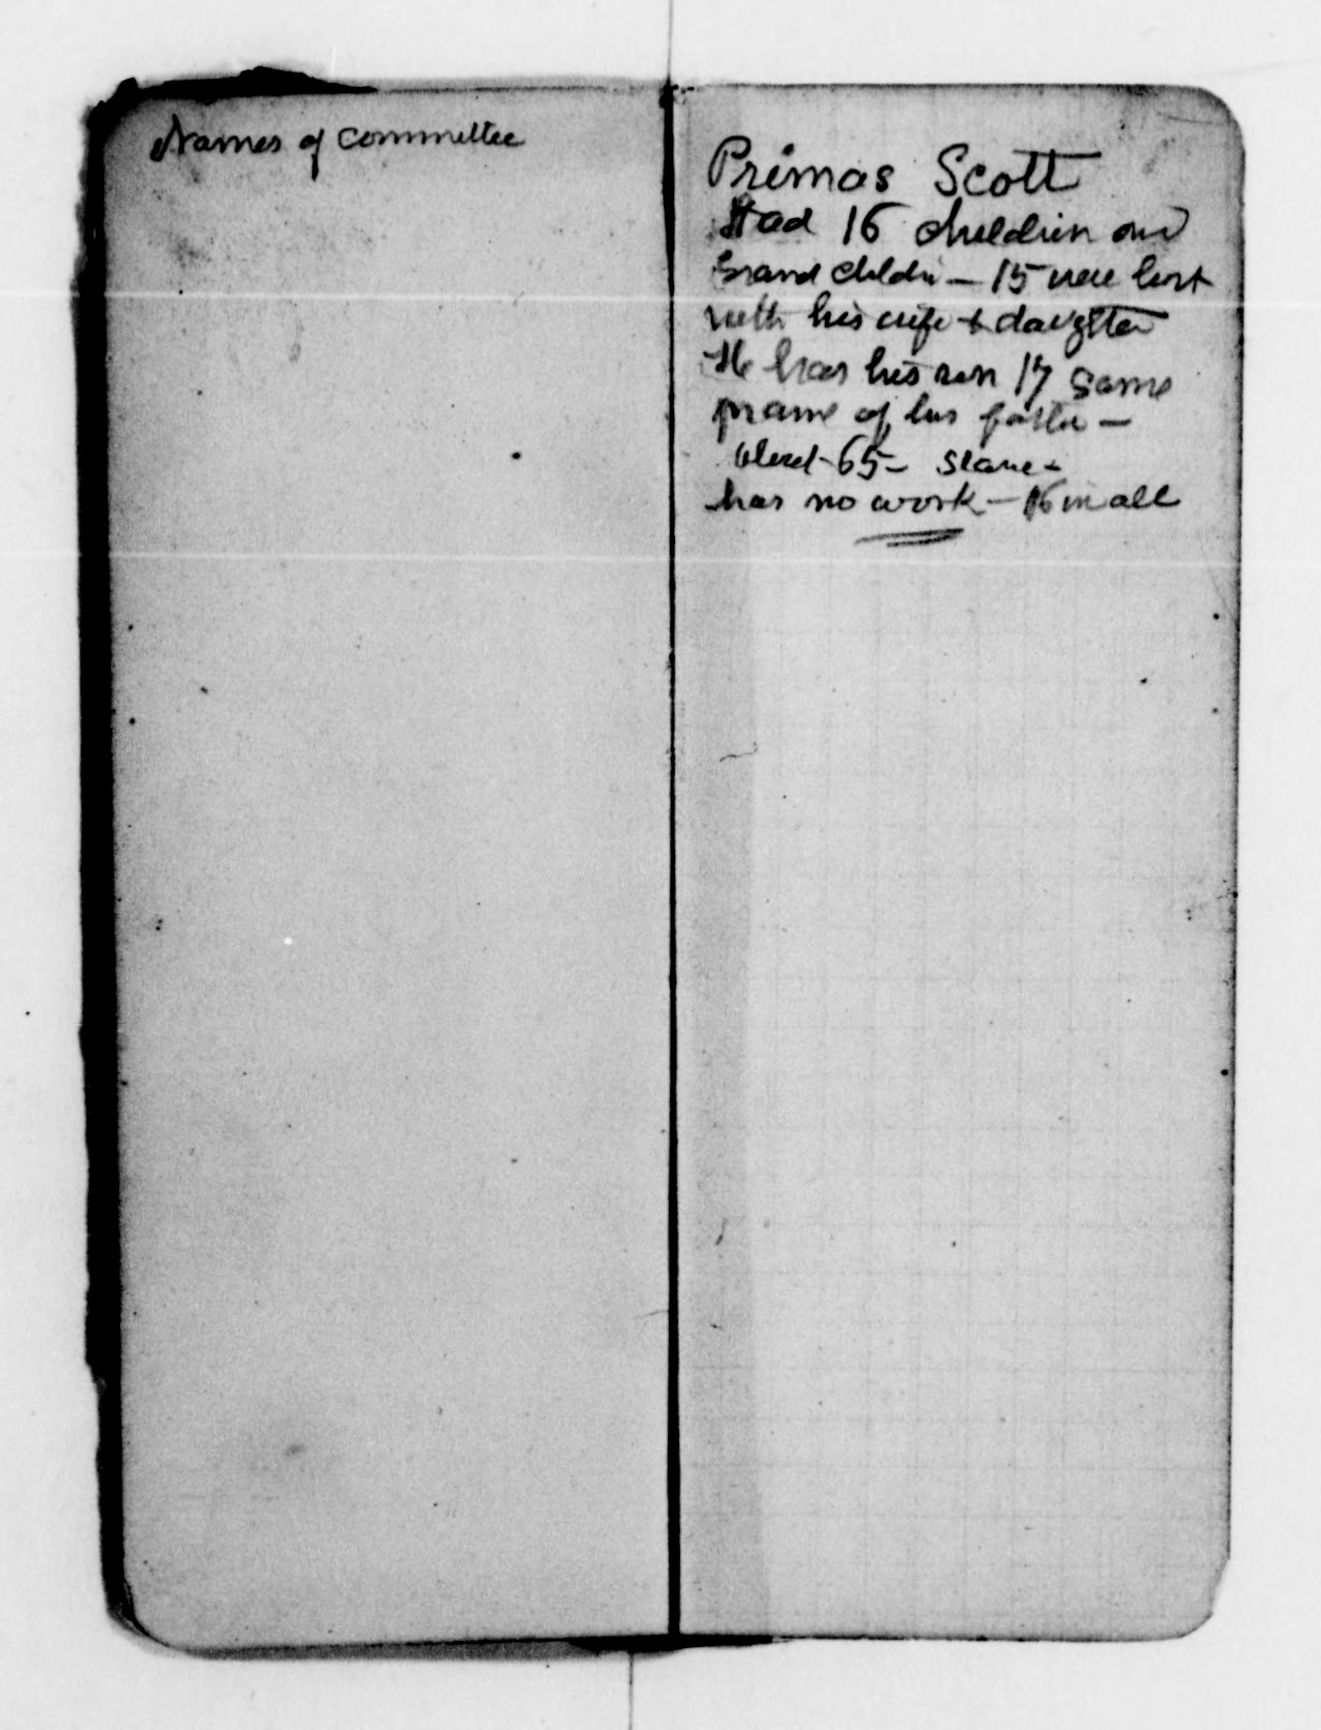 Names of Committee
Primas Scott
Had 16 children and
Grand childn — 15 were lost
with his wife & daughter
He has his son 17 same
name of his father —
65 — Slave —
has no work — 16 in all